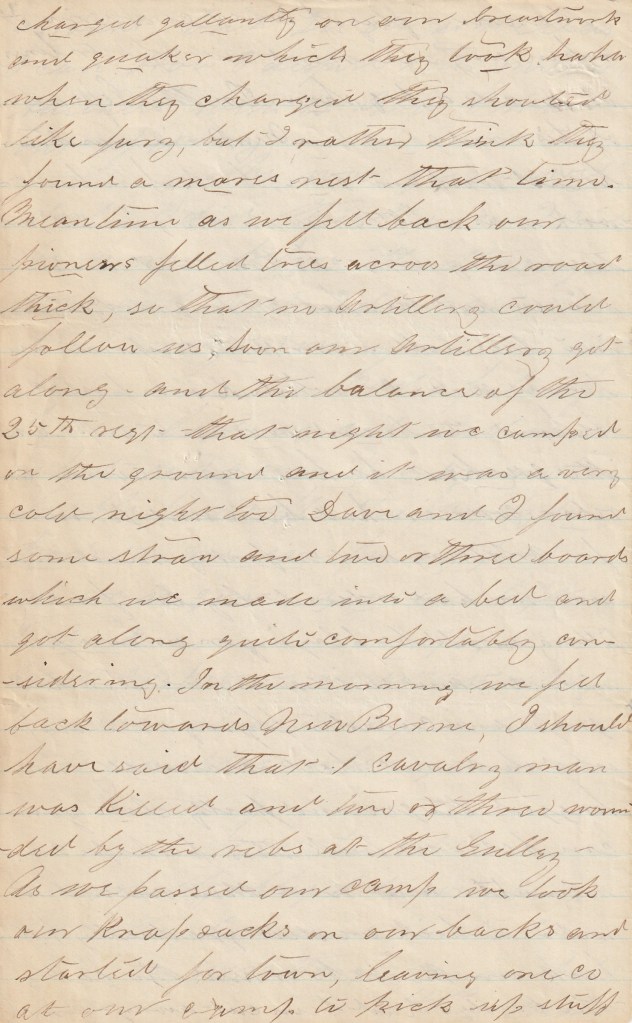 charged gallantly on our breastwork
and quaker which they took haha
when they charged they shouted
like fury, but I rather think they
found a mares nest that time.
Meantime as we fell back our
pioneers felled trees across the road
thick, so that no Artillery could
follow us; Soon our Artillery got
along - and the balance of the
25th regt - that night we camped
on the ground and it was a very
cold night too Dave and I found
some straw and two or three boards
which we made into a bed and
got along quite comfortably con-
-sidering. In the morning we fell
back towards New Berne, I should
have said that 1 cavalry man
was killed and two or three woun
-ded by the rebs at the Gulley
As we passed our camp we took
our Knapsacks on our backs and
started for town, leaving one co
at our camp to pick up stuff